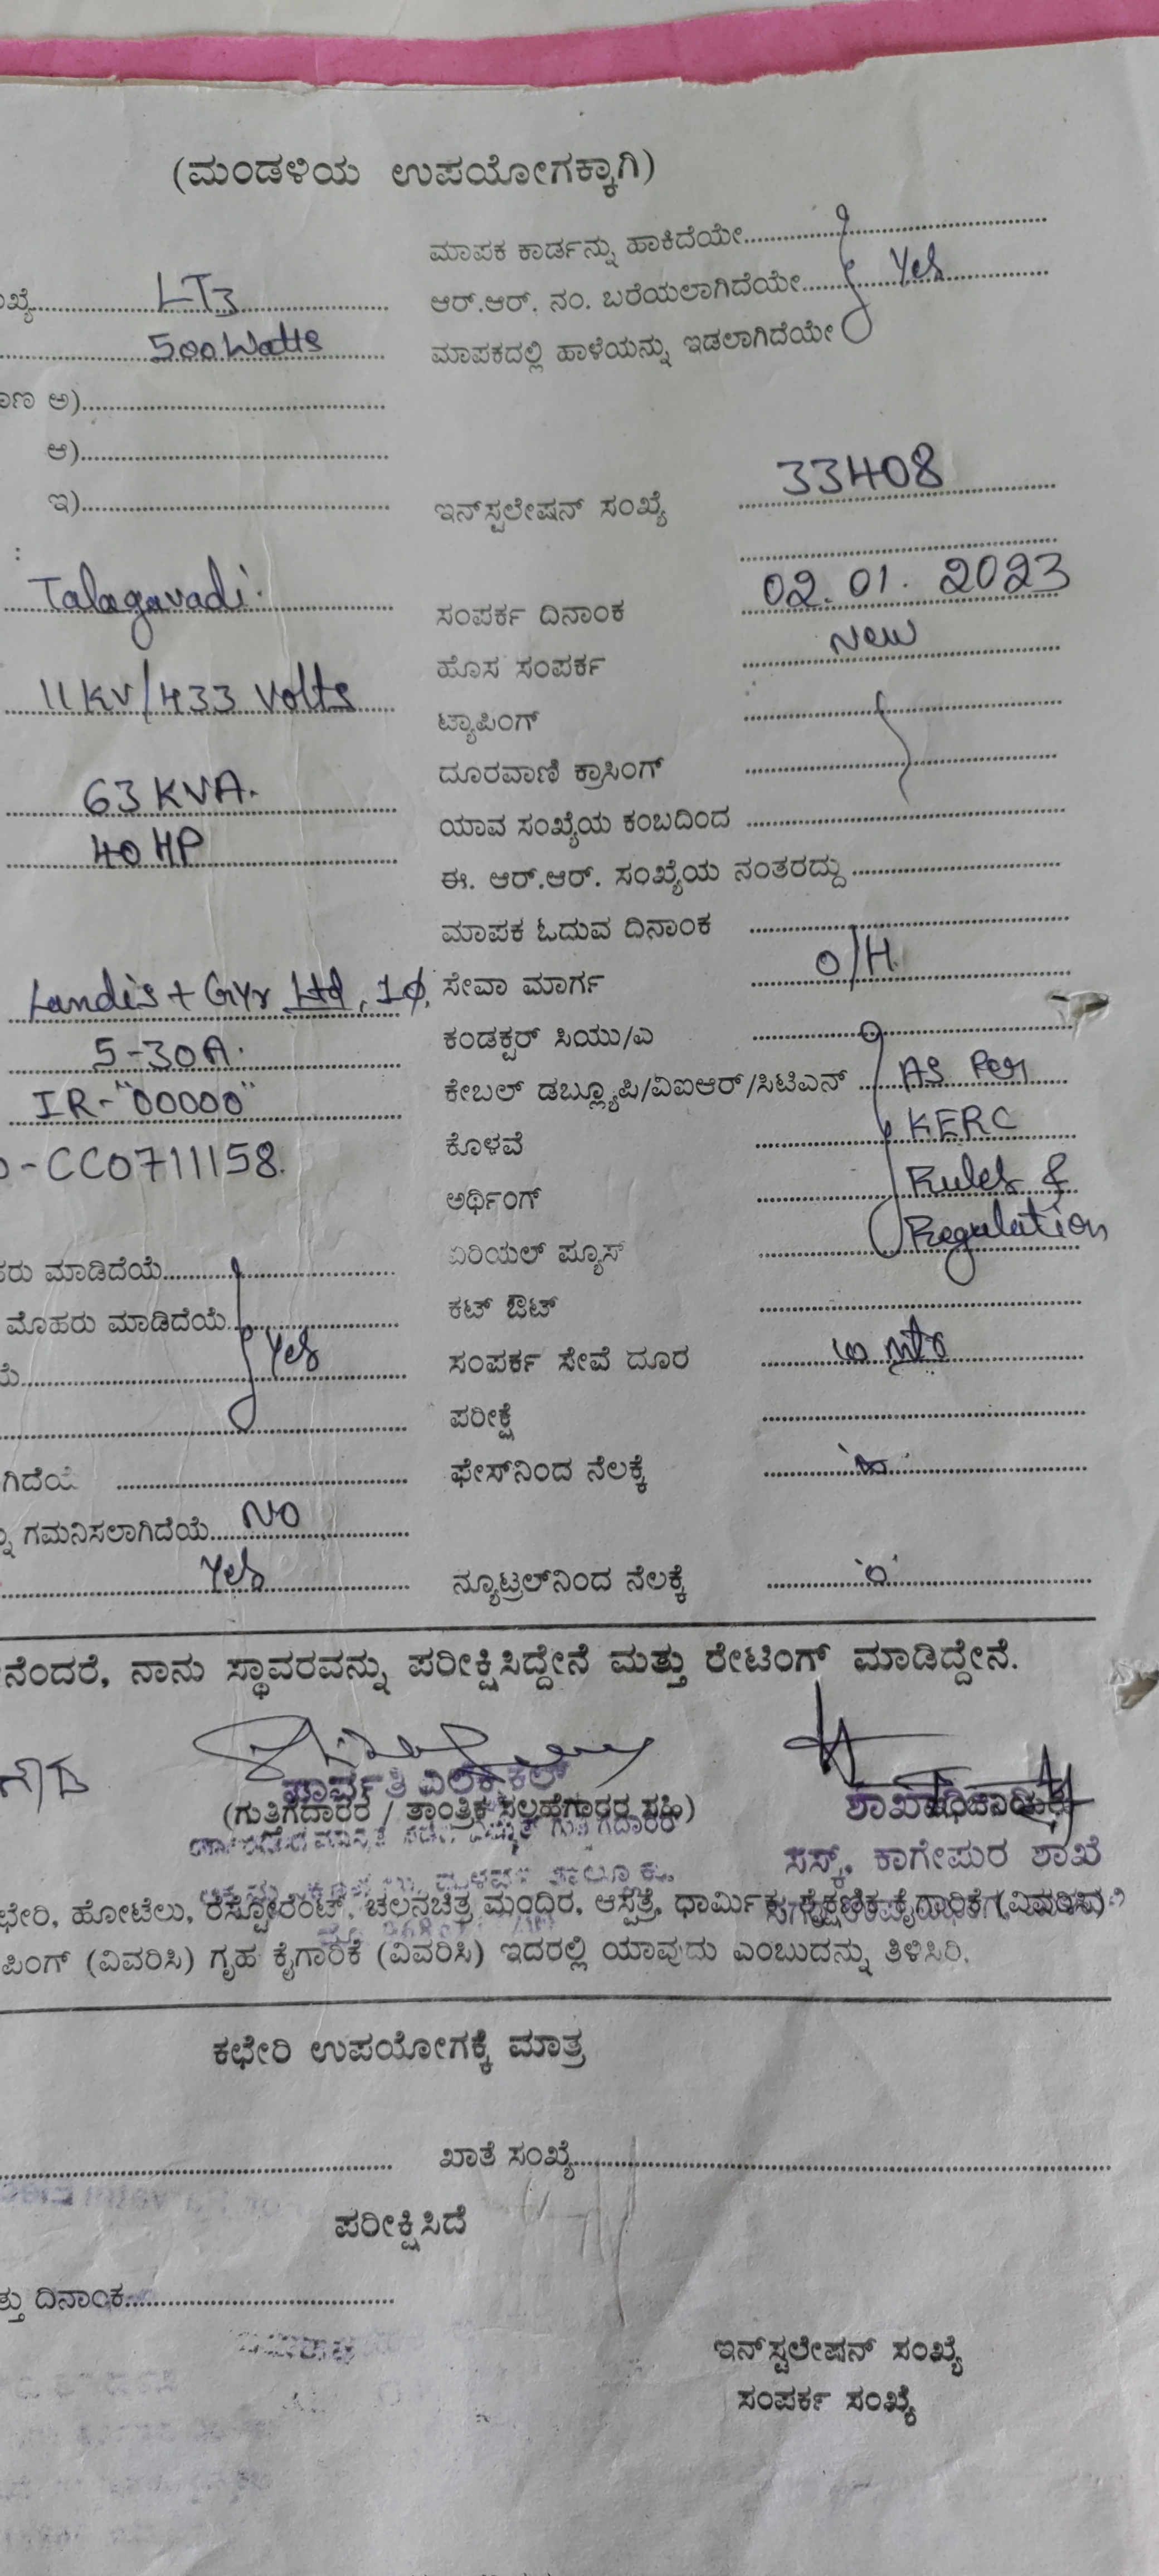 (ಮಂಡಳಿಯ ಉಪಯೋಗಕ್ಕಾಗಿ)
ಖ್ಯೆ LT3
500 Watts
ಅ)
ಆ)
ಇ)
:
Talagavadi.
11 KV/433 Volts
63 KVA.
40 HP
Landis + Gyr Ltd, 1ϕ,
5-30A.
IR-"00000"
-CC0711158.
ಮಾಡಿದೆಯೆ
ಮೊಹರು ಮಾಡಿದೆಯೆ
Yes
ಗಿದೆಯೆ
ಗಮನಿಸಲಾಗಿದೆಯೆ NO
Yes
ಮಾಪಕ ಕಾರ್ಡನ್ನು ಹಾಕಿದೆಯೇ
ಆರ್.ಆರ್. ನಂ. ಬರೆಯಲಾಗಿದೆಯೇ Yes
ಮಾಪಕದಲ್ಲಿ ಹಾಳೆಯನ್ನು ಇಡಲಾಗಿದೆಯೇ
ಇನ್‌ಸ್ಟಲೇಷನ್ ಸಂಖ್ಯೆ 33408
ಸಂಪರ್ಕ ದಿನಾಂಕ 02.01.2023
ಹೊಸ ಸಂಪರ್ಕ New
ಟ್ಯಾಪಿಂಗ್
ದೂರವಾಣಿ ಕ್ರಾಸಿಂಗ್
ಯಾವ ಸಂಖ್ಯೆಯ ಕಂಬದಿಂದ
ಈ. ಆರ್.ಆರ್. ಸಂಖ್ಯೆಯ ನಂತರದ್ದು
ಮಾಪಕ ಓದುವ ದಿನಾಂಕ
ಸೇವಾ ಮಾರ್ಗ O/H.
ಕಂಡಕ್ಟರ್ ಸಿಯು/ಎ
ಕೇಬಲ್ ಡಬ್ಲ್ಯೂಪಿ/ವಿಐಆರ್/ಸಿಟಿಎನ್ As Per
ಕೊಳವೆ KERC
ಅರ್ಥಿಂಗ್ Rules &
ಏರಿಯಲ್ ಫ್ಯೂಸ್ Regulation
ಕಟ್ ಔಟ್
ಸಂಪರ್ಕ ಸೇವೆ ದೂರ
ಪರೀಕ್ಷೆ
ಫೇಸ್‌ನಿಂದ ನೆಲಕ್ಕೆ
ನ್ಯೂಟ್ರಲ್‌ನಿಂದ ನೆಲಕ್ಕೆ
ನೆಂದರೆ, ನಾನು ಸ್ಥಾವರವನ್ನು ಪರೀಕ್ಷಿಸಿದ್ದೇನೆ ಮತ್ತು ರೇಟಿಂಗ್ ಮಾಡಿದ್ದೇನೆ.
ಪಾರ್ವತಿ ಎಲೆಕ್ಟ್ರಿಕಲ್
(ಗುತ್ತಿಗೆದಾರರ / ತಾಂತ್ರಿಕ ಸಲಹೆಗಾರರ ಸಹಿ)
ಶಾಖಾಧಿಕಾರಿ
ಕಾಗೇಪುರ ಶಾಖೆ
ಛೇರಿ, ಹೋಟೆಲು, ರೆಸ್ಟೋರೆಂಟ್, ಚಲನಚಿತ್ರ ಮಂದಿರ, ಆಸ್ಪತ್ರೆ, ಧಾರ್ಮಿಕ, ಶೈಕ್ಷಣಿಕ ಕೈಗಾರಿಕೆ (ವಿವರಿಸಿ)
ಪಿಂಗ್ (ವಿವರಿಸಿ) ಗೃಹ ಕೈಗಾರಿಕೆ (ವಿವರಿಸಿ) ಇದರಲ್ಲಿ ಯಾವುದು ಎಂಬುದನ್ನು ತಿಳಿಸಿರಿ.
ಕಛೇರಿ ಉಪಯೋಗಕ್ಕೆ ಮಾತ್ರ
ಖಾತೆ ಸಂಖ್ಯೆ
ಪರೀಕ್ಷಿಸಿದೆ
ತ್ತು ದಿನಾಂಕ
ಇನ್‌ಸ್ಟಲೇಷನ್ ಸಂಖ್ಯೆ
ಸಂಪರ್ಕ ಸಂಖ್ಯೆ